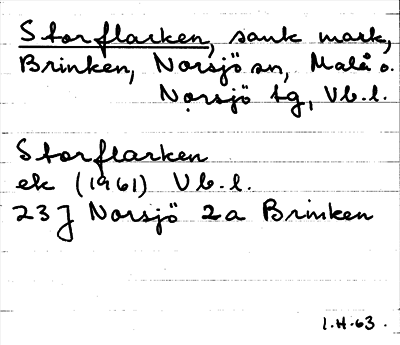 Storflarken, sank mark,
Brinken, Norsjö sn, Malå o.
Norsjö tg, Vb.l.
Storflarken
ek (1961) Vb.l.
23J Norsjö 2a Brinken
I.H.63.